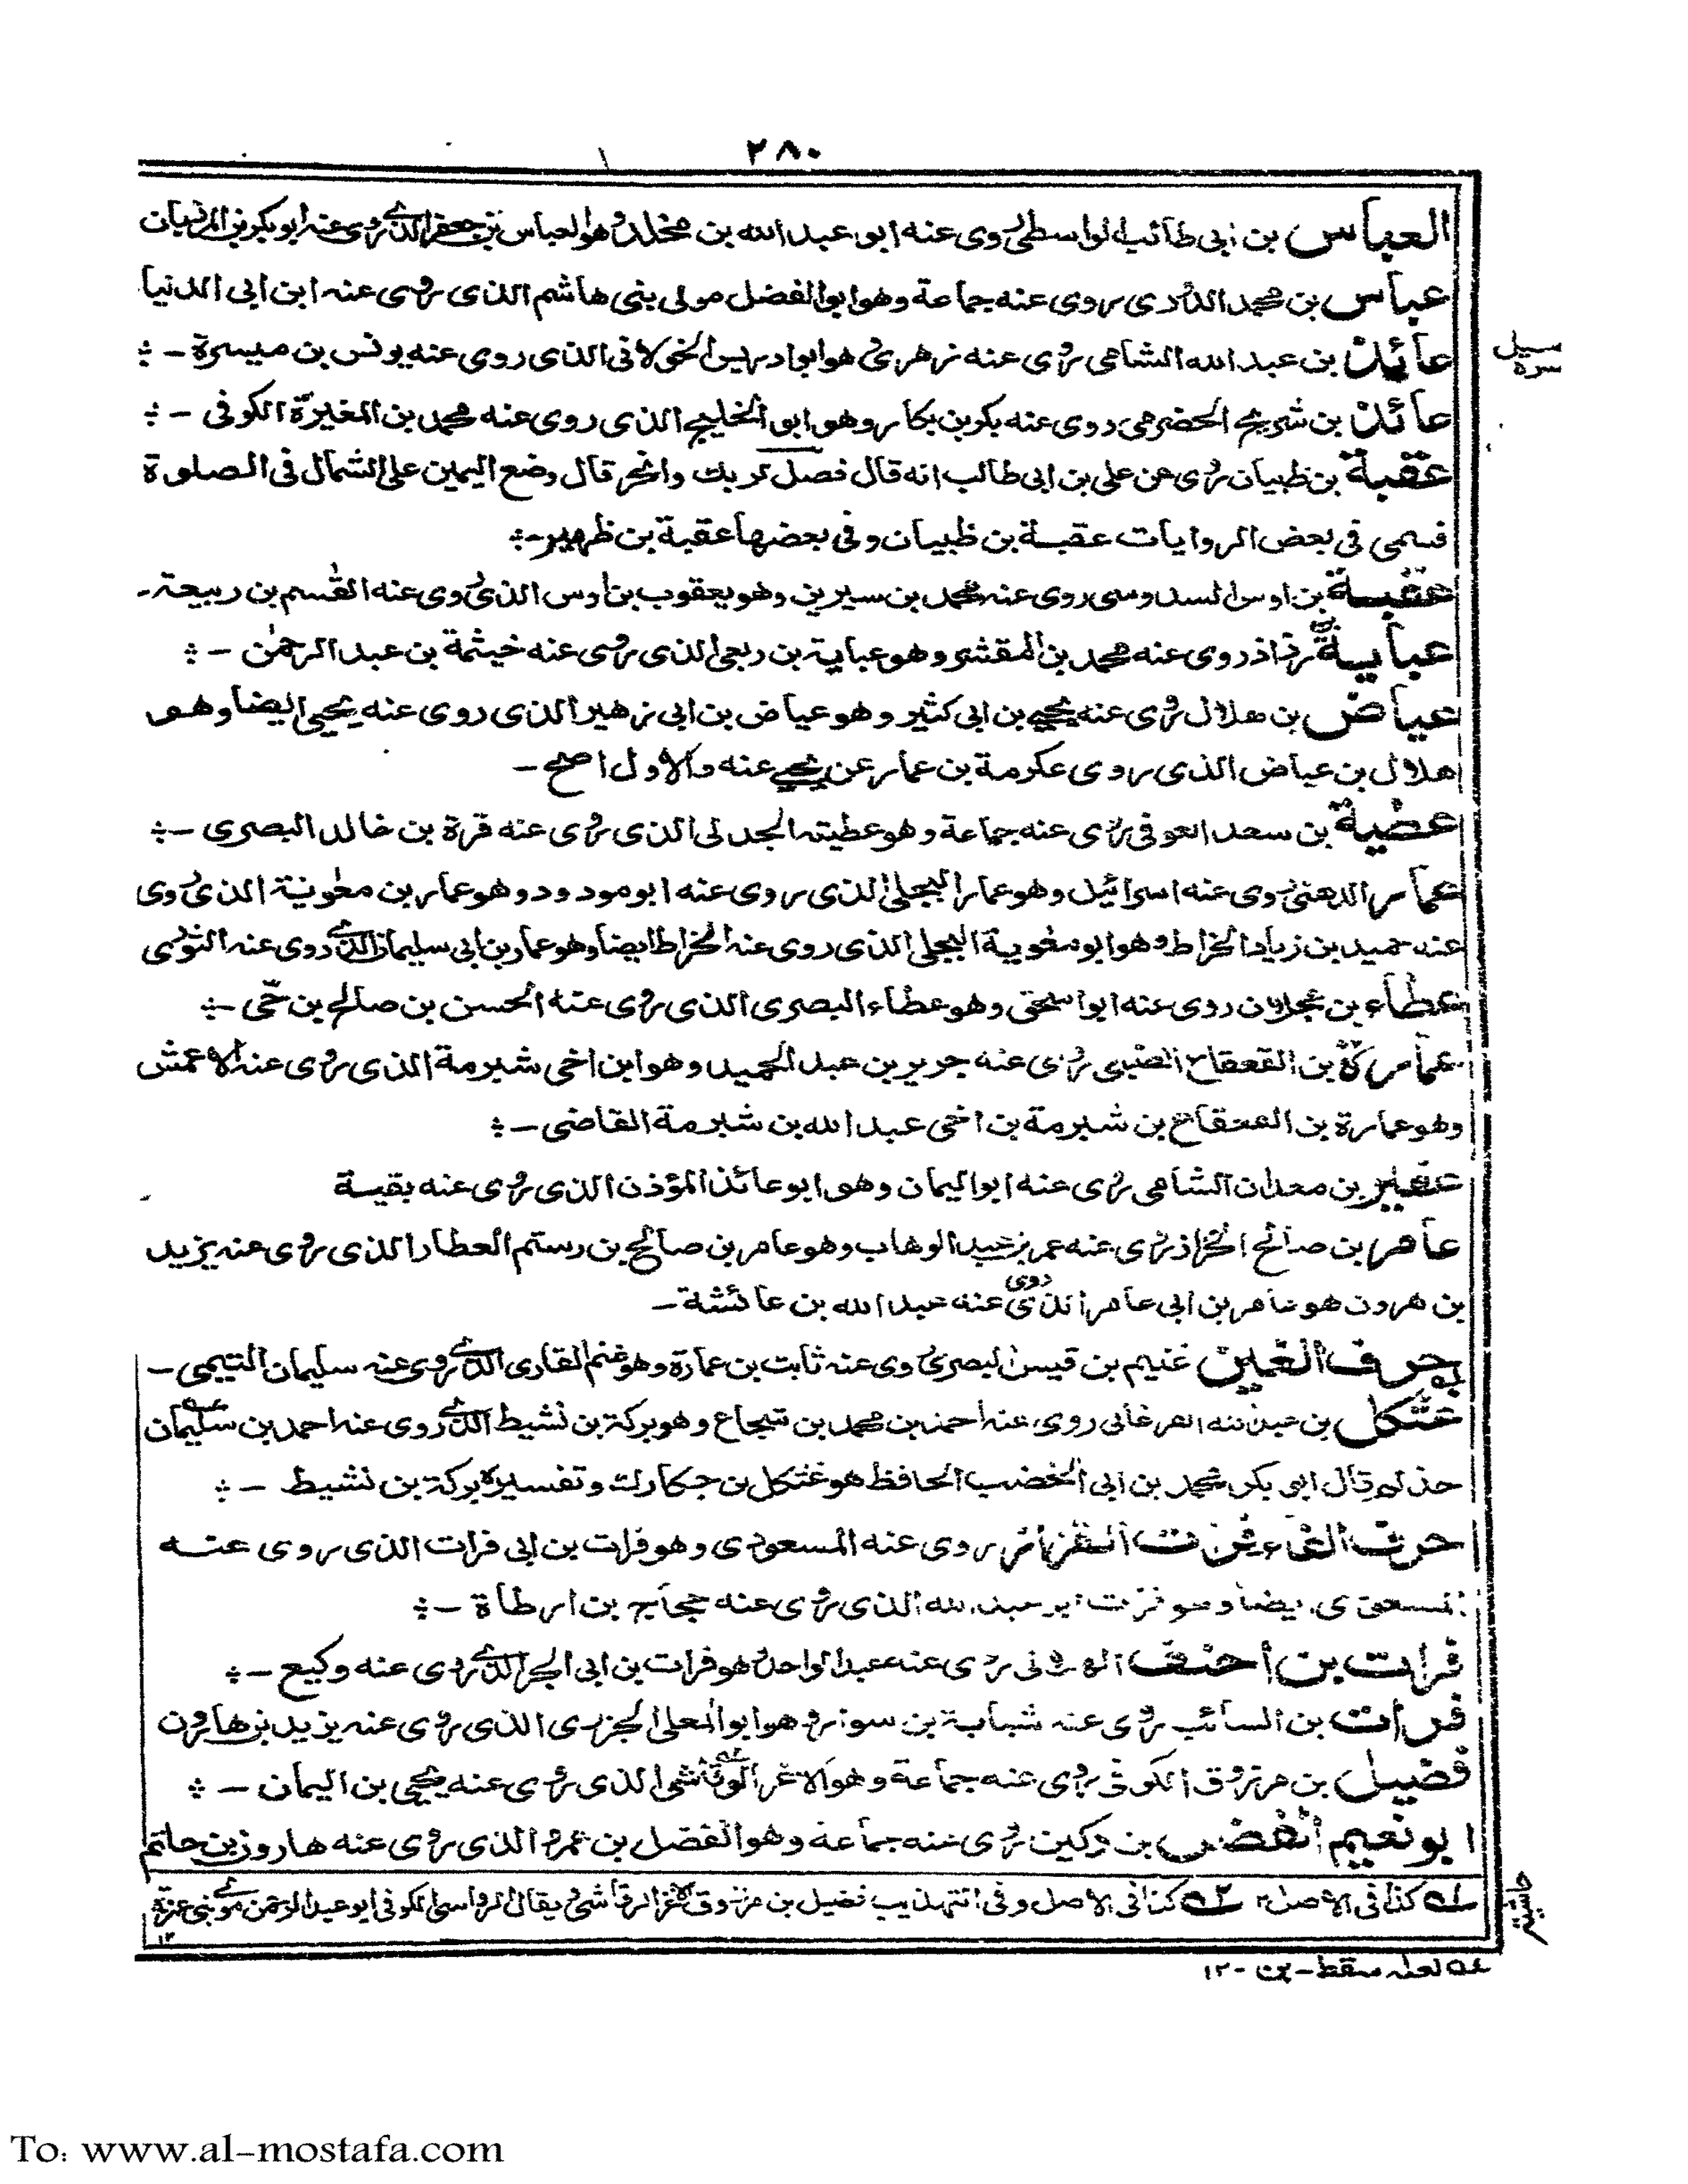 ٢٨٠
العباس بن ابى طالب الواسطى روى عنه ابو عبد الله بن مخلد وهو العباس بن جعفر الذى روى عنه ابو بكر بن المرزبان
عباس بن محمد الدورى روى عنه جماعة وهو ابو الفضل مولى بنى هاشم الذى روى عنه ابن ابى الدنيا
عائذ بن عبد الله الشامى روى عنه زهرى هو ابو ادريس الخولانى الذى روى عنه يونس بن ميسرة -
عائذ بن شريح الحضرمى روى عنه بكر بن بكار وهو ابو الخليج الذى روى عنه محمد بن المغيرة الكوفى -
عقبة بن ظبيان روى عن على بن ابى طالب انه قال فصل لربك وانحر قال وضع اليمين على الشمال فى الصلوة
فسمى فى بعض الروايات عقبة بن ظبيان و فى بعضها عقبة بن ظهير -
عقبة بن اوس السدوسى روى عنه محمد بن سيرين وهو يعقوب بن اوس الذى روى عنه القسم بن ربيعة -
عباية روى عنه محمد بن وهو عباية بن ربعى الذى روى عنه خيثمة بن عبد الرحمٰن -
عياض بن هلال روى عنه يحيى بن ابى كثير وهو عياض بن ابى زهير الذى روى عنه يحيى ايضا وهو
هلال بن عياض الذى روى عكرمة بن عمار عن يحيى عنه والاول اصح -
عطية بن سعد العوفى روى عنه جماعة وهو عطية الجدلى الذى روى عنه قرة بن خالد البصرى -
عمار الدهنى روى عنه اسرائيل وهو عمار البجلى الذى روى عنه ابو مودود وهو عمار بن معٰوية الذى روى
عنه حميد بن زياد الخراط وهو ابو معٰوية البجلى الذى روى عنه الخراط ايضا وهو عمار بن ابى سليمان الذى روى عنه الثورى
عطاء بن عجلان روى عنه ابو اسحٰق وهو عطاء البصرى الذى روى عنه الحسن بن صالح بن حى -
عمارة بن القعقاع الضبى روى عنه جرير بن عبد الحميد وهو ابن اخى شبرمة الذى روى عنه الاعمش
وهو عمارة بن القعقاع بن شبرمة بن اخى عبد الله بن شبرمة القاضى -
عفير بن معدان الشامى روى عنه ابو اليمان وهو ابو عائذ المؤذن الذى روى عنه بقية
عامر بن صالح الخزاز روى عنه عمر بن عبد الوهاب وهو عامر بن صالح بن رستم العطار الذى روى عنه يزيد
بن هرون هو عامر بن ابى عامر الذى روى عنه عبد الله بن عائشة -
حرف الغين غنيم بن قيس البصرى روى عنه ثابت بن عمارة وهو غنم القارى الذى روى عنه سليمان التيمى -
غتكل بن عبد الله الفرغانى روى عنه احمد بن محمد بن شجاع وهو بركة بن نشيط الذى روى عنه احمد بن سليمان
حذلم قال ابى بكر محمد بن ابى الخضيب الحافظ هو غتكل بن حكارك وتفسيره بركة بن نشيط -
حرف الفاء فرات القزاز روى عنه المسعودى وهو فرات بن ابى فرات الذى روى عنه
المسعودى ايضا وهو فرات ابو عبد الله الذى روى عنه حجاج بن ارطاة -
فرات بن احنف الهلالى روى عنه عبد الواحد وهو فرات بن ابى الحر الذى روى عنه وكيع -
فرات بن السائب روى عنه شبابة بن سوار وهو ابو المعلى الجزرى الذى روى عنه يزيد بن هارون
فضيل بن مرزوق الكوفى روى عنه جماعة وهو الاغر الرقاشى الذى روى عنه يحيى بن اليمان -
ابو نعيم الفضل بن دكين روى عنه جماعة وهو الفضل بن عمرو الذى روى عنه هارون بن حاتم
له كذا فى الاصل ١٢ ٥٢ كذا فى الاصل وفى التهذيب فضيل بن مرزوق الاغر الرقاشى ويقال الرواسى الكوفى ابو عبد الرحمن مولى بنى عنزة
١٢
لعله سقط - بن - ١٢
To: www.al-mostafa.com